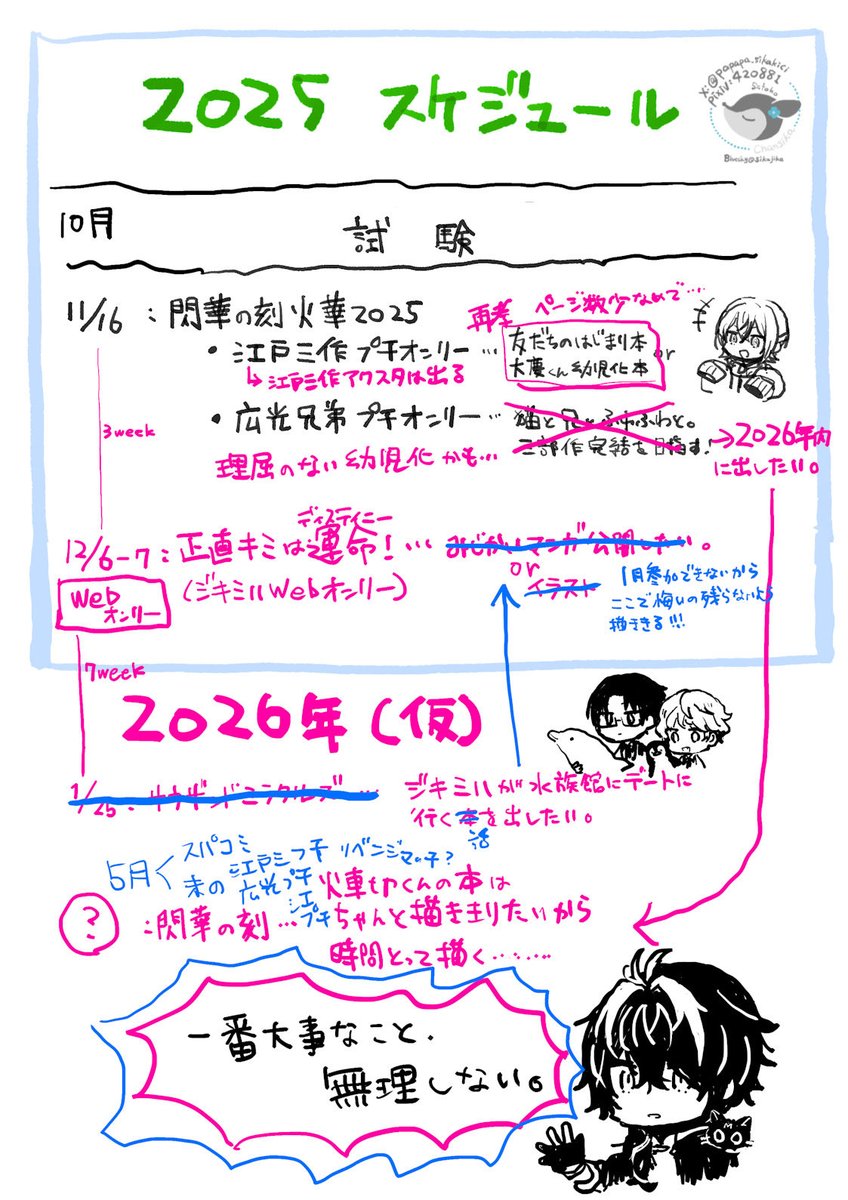 2025 スケジュール
X:@papapa_sikahici
Pixiv:420881
Satoko
Chansika
Bluesky@sikajika
10月
試験
11/16 : 閃華の刻火華2025
再考 ページ数少なめで……
・江戸三作プチオンリー…
友だちのはじまり本
or
大慶くん幼児化本
↳江戸三作アクスタは出る
3week
・広光兄弟プチオンリー…
猫と兄とふわふわと。
三部作完結を目指す!
→2026年内
に出したい。
理屈のない幼児化かも…
12/6-7 : 正直キミは運命!…
ディスティニー
みじかいマンガ公開したい。
or
イラスト
Web
オンリー
(ジキミハWebオンリー)
1月参加できないから
ここで悔いの残らないよう
描ききる!!!
7week
2026年(仮)
1/25 : サウザンドミラクルズ…
ジキミハが水族館にデートに
行く本を出したい。
話
5月く
スパコミ
江戸三プチ リベンジマッチ?
末の広光プチ
火車切くんの本は
?
:閃華の刻…
ちゃんと描き切りたいから
時間とって描く………
一番大事なこと、
無理しない。